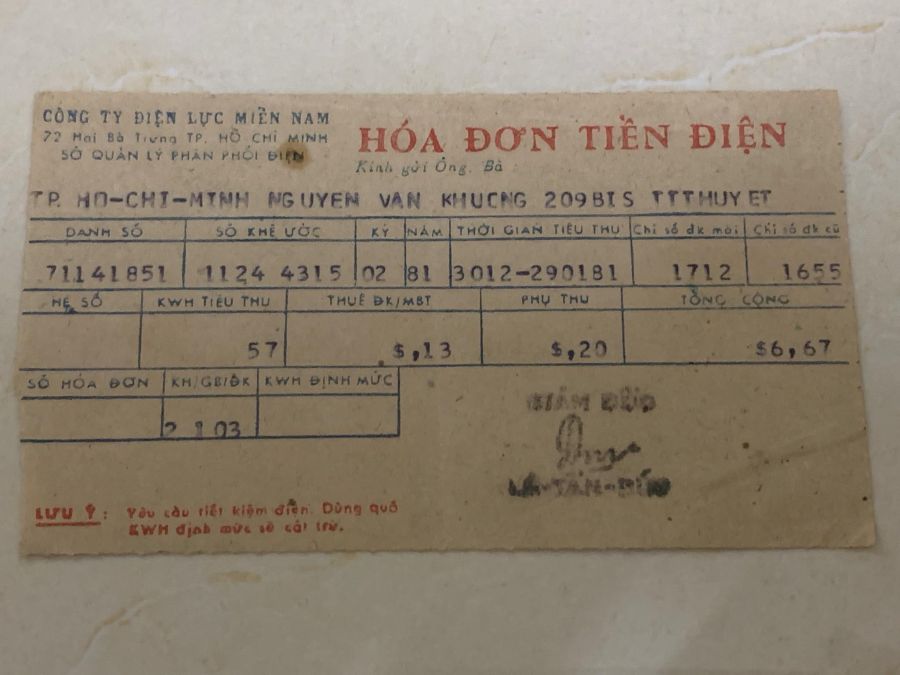 CÔNG TY ĐIỆN LỰC MIỀN NAM
72 Hai Bà Trưng TP. HỒ CHÍ MINH
SỞ QUẢN LÝ PHÂN PHỐI ĐIỆN
HÓA ĐƠN TIỀN ĐIỆN
Kính gửi Ông, Bà
TP. HO-CHI-MINH NGUYEN VAN KHUCNG 209BIS TTTHUYET
DANH SỐ SỐ KHẾ ƯỚC KỲ NĂM THỜI GIAN TIÊU THỤ Chỉ số đk mới Chỉ số đk cũ
71141851 1124 4315 02 81 3012-290181 1712 1655
HỆ SỐ KWH TIÊU THỤ THUÊ ĐK/MBT PHỤ THU TỔNG CỘNG
57 $,13 $,20 $6,67
SỐ HÓA ĐƠN KH/GB/ĐK KWH ĐỊNH MỨC
2 1 03
GIÁM ĐỐC
LƯU Ý: Yêu cầu tiết kiệm điện. Dùng quá
KWH định mức sẽ cắt trừ.